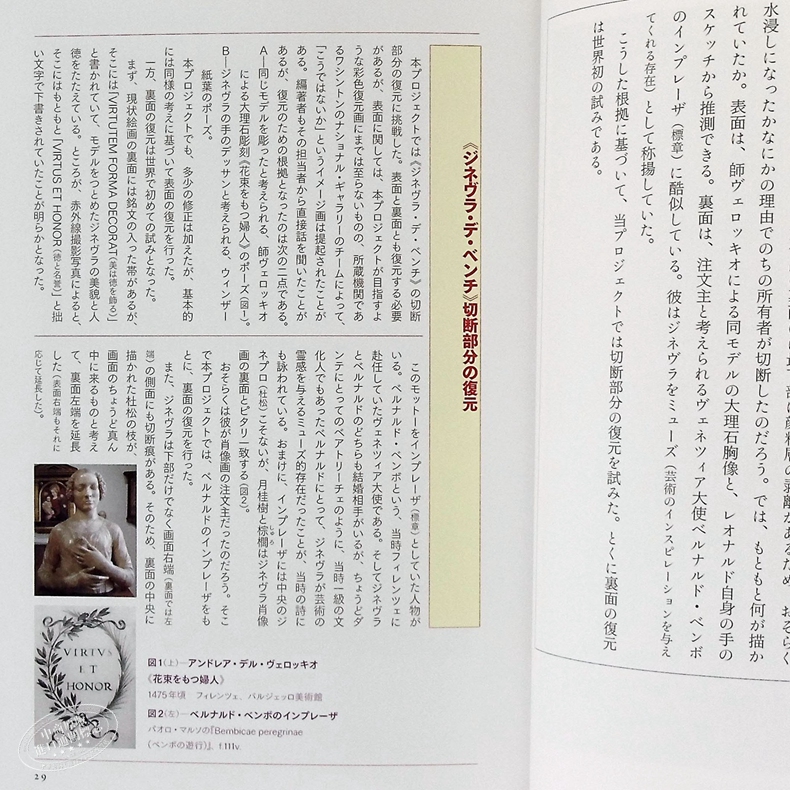 顔料層の剥離があるため、おそらく
水浸しになったかなにかの理由でのちの所有者が切断したのだろう。では、もともと何が描か
れていたか。表面は、師ヴェロッキオによる同モデルの大理石胸像と、レオナルド自身の手の
スケッチから推測できる。裏面は、注文主と考えられるヴェネツィア大使ベルナルド・ベンボ
のインプレーザ（標章）に酷似している。彼はジネヴラをミューズ（芸術のインスピレーションを与え
てくれる存在）として称揚していた。
こうした根拠に基づいて、当プロジェクトでは切断部分の復元を試みた。とくに裏面の復元
は世界初の試みである。
《ジネヴラ・デ・ベンチ》切断部分の復元
本プロジェクトでは《ジネヴラ・デ・ベンチ》の切断
部分の復元に挑戦した。表面と裏面とも復元する必要
があるが、表面に関しては、本プロジェクトが目指すよ
うな彩色復元画にまでは至らないものの、所蔵機関であ
るワシントンのナショナル・ギャラリーのチームによって、
「こうではないか」というイメージ画は提起されたことが
ある。編著者もその担当者から直接話を聞いたことが
あるが、復元のための根拠となったのは次の二点である。
A―同じモデルを彫ったと考えられる、師ヴェロッキオ
による大理石彫刻《花束をもつ婦人》のポーズ（図1）。
B―ジネヴラの手のデッサンと考えられる、ウィンザー
紙葉のポーズ。
本プロジェクトでも、多少の修正は加えたが、基本的
には同様の考えに基づいて表面の復元を行った。
一方、裏面の復元は世界で初めての試みとなった。
まず、現状絵画の裏面には銘文の入った帯があるが、
そこには「VIRTUTEM FORMA DECORAT（美は徳を飾る）」
と書かれていて、モデルをつとめたジネヴラの美貌と人
徳をたたえている。ところが、赤外線撮影写真によると、
そこにはもともと「VIRTUS ET HONOR（徳と名誉）」と拙
い文字で下書きされていたことが明らかとなった。
このモットーをインプレーザ（標章）としていた人物が
いる。ベルナルド・ベンボという、当時フィレンツェに
赴任していたヴェネツィア大使である。そしてジネヴラ
とベルナルドのどちらも結婚相手がいるが、ちょうどダ
ンテにとってのベアトリーチェのように、当時一級の文
化人でもあったベルナルドにとって、ジネヴラが芸術の
霊感を与えるミューズ的存在だったことが、当時の詩に
も詠われている。おまけに、インプレーザには中央のジ
ネプロ（杜松）こそないが、月桂樹と棕櫚はジネヴラ肖像
しゅろ
画の裏面とピタリ一致する（図2）。
おそらくは彼が肖像画の注文主だったのだろう。そこ
で本プロジェクトでは、ベルナルドのインプレーザをも
とに、裏面の復元を行った。
また、ジネヴラは下部だけでなく画面右端（裏面では左
端）の側面にも切断痕がある。そのため、裏面の中央に
描かれた杜松の枝が、
画面のちょうど真ん
中に来るものと考え
て、裏面左端を延長
した（表面右端もそれに
応じて延長した）。
VIRTVS
ET
HONOR
図1（上）―アンドレア・デル・ヴェロッキオ
《花束をもつ婦人》
1475年頃 フィレンツェ、バルジェッロ美術館
図2（左）―ベルナルド・ベンボのインプレーザ
パオロ・マルソの『Bembicae peregrinae
（ベンボの遊行）』、f.111v.
29